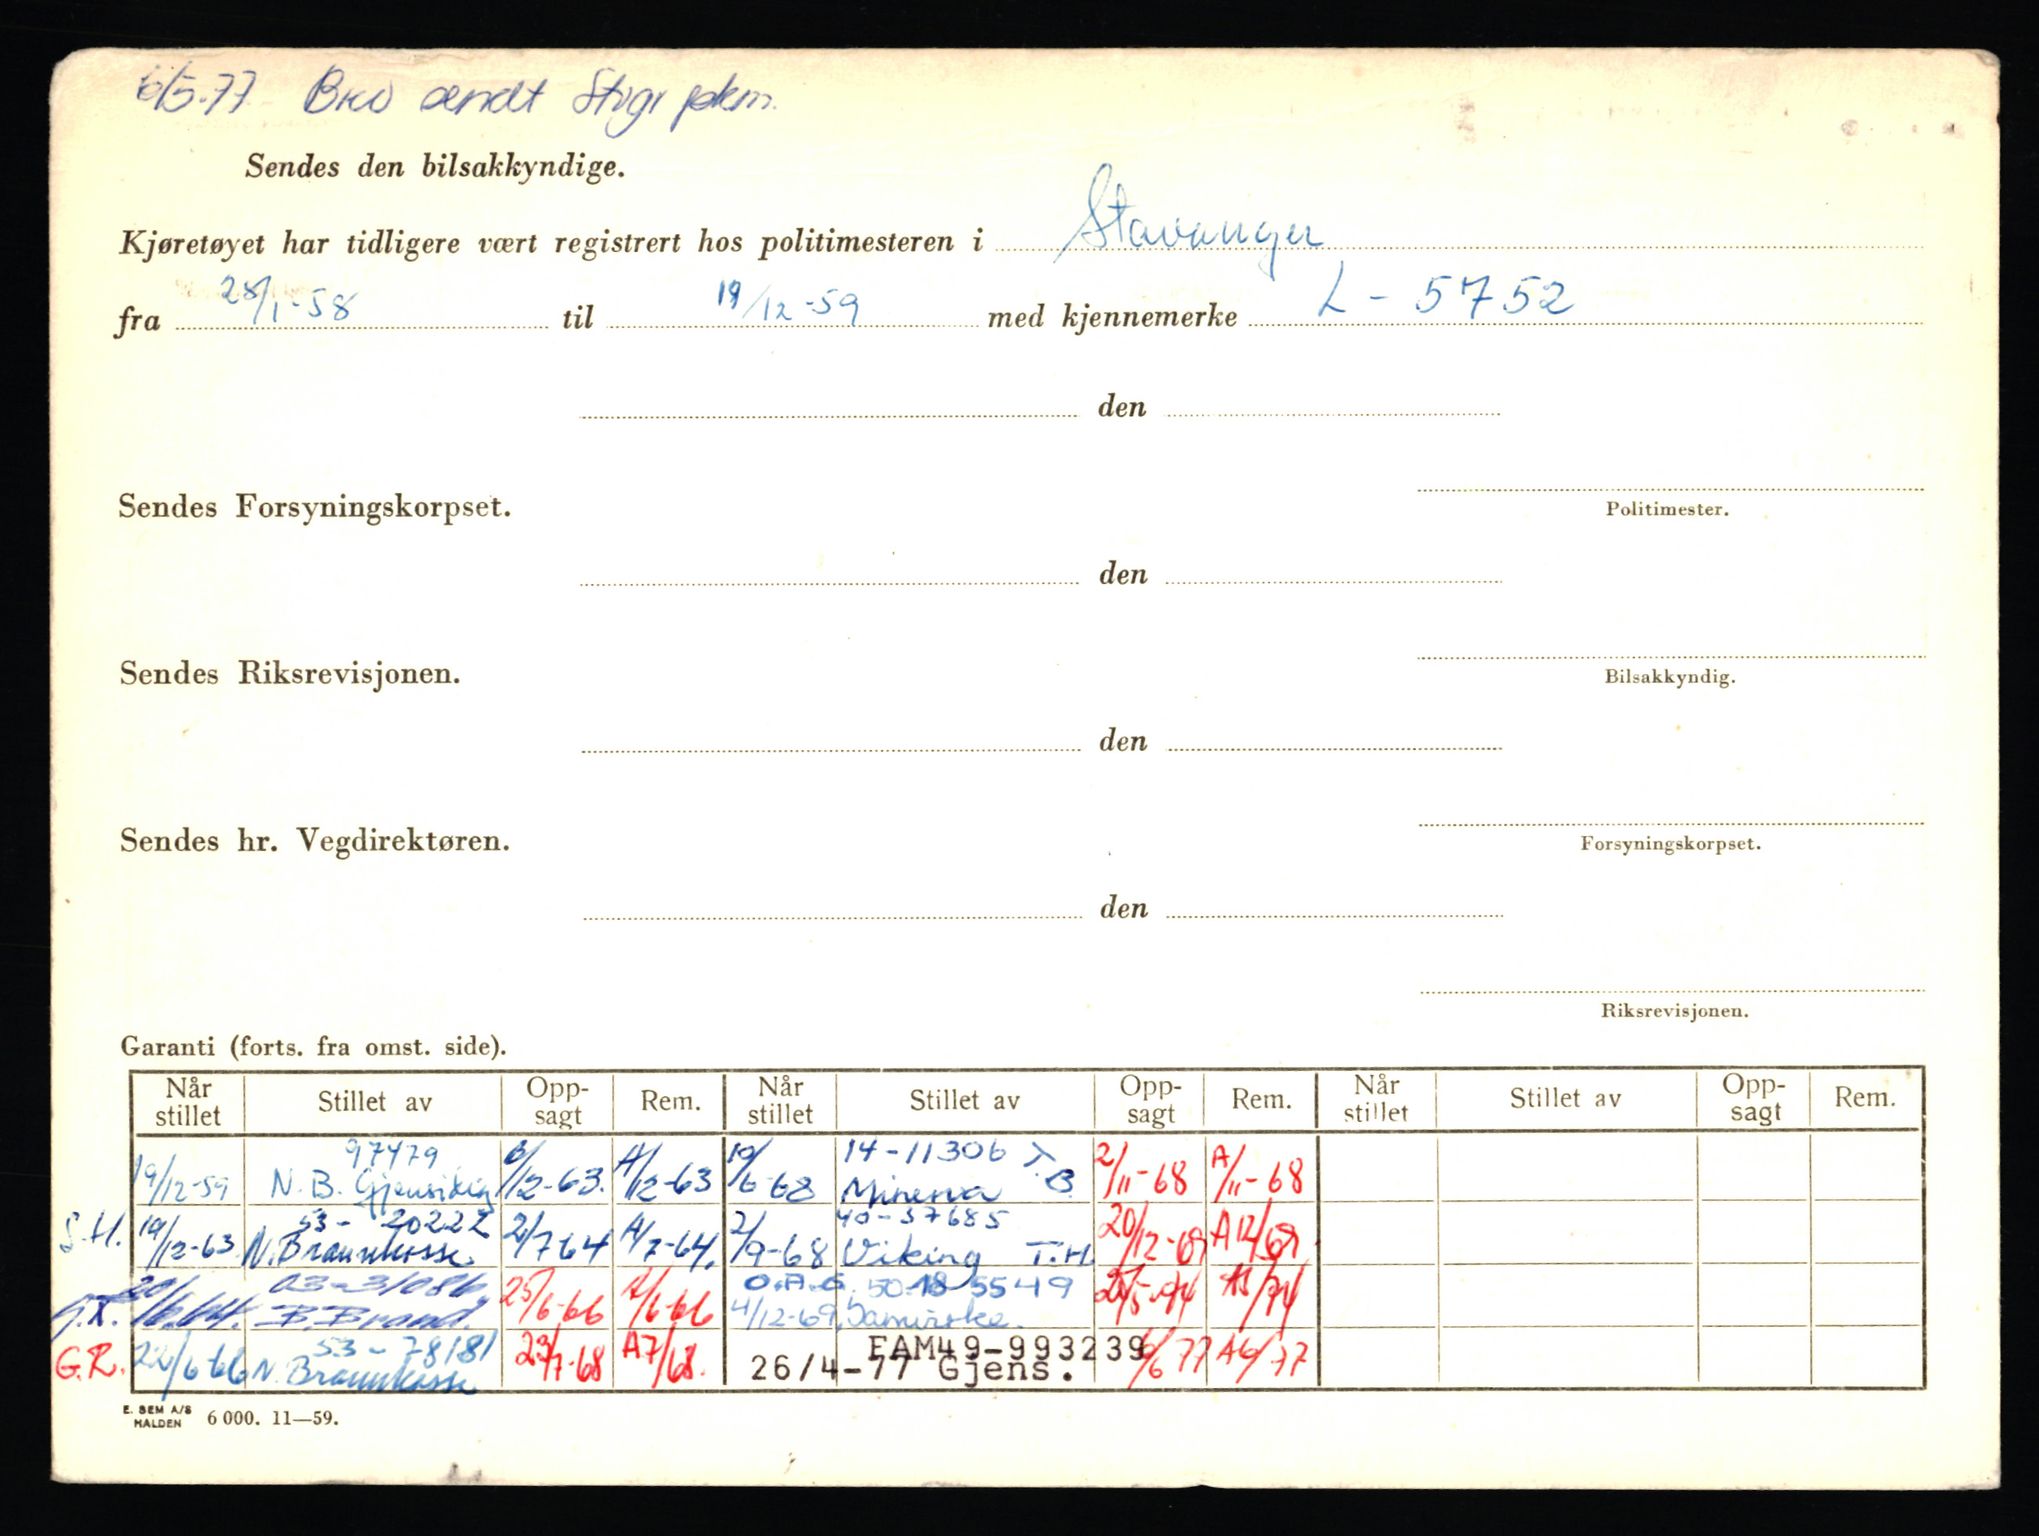 6/5-77 Brev sendt Stvgr pkm.
Sendes den bilsakkyndige.
Kjøretøyet har tidligere vært registrert hos politimesteren i Stavanger
fra 28/1-58 til 19/12-59 med kjennemerke L - 5752
den
Sendes Forsyningskorpset.
Politimester.
den
Sendes Riksrevisjonen.
Bilsakkyndig.
den
Sendes hr. Vegdirektøren.
Forsyningskorpset.
den
Riksrevisjonen.
Garanti (forts. fra omst. side).
Når stillet Stillet av Opp-sagt Rem. Når stillet Stillet av Opp-sagt Rem. Når stillet Stillet av Opp-sagt Rem.
97479 14-11306 T.B.
19/12-59 N.B. Gjensidig 6/12-63. A/12-63 19/6-68 Minerva 2/11-68 A/11-68
S.H. 53- 20222 40-37685
19/12-63 N. Brannkasse 2/7 64 A/7-64. 2/9-68 Viking T.H. 20/12-69 A12/69
50-18 5549
B. Brand. 25/6-66 A/6-66 4/12-69 Samvirke.
G.R. 53-78181 EAM49-993239
22/6 66 N. Brannkasse 29/7-68 A7/68. 26/4-77 Gjens. 6/6 77 A6/77
E. SEM A/S HALDEN 6 000. 11—59.